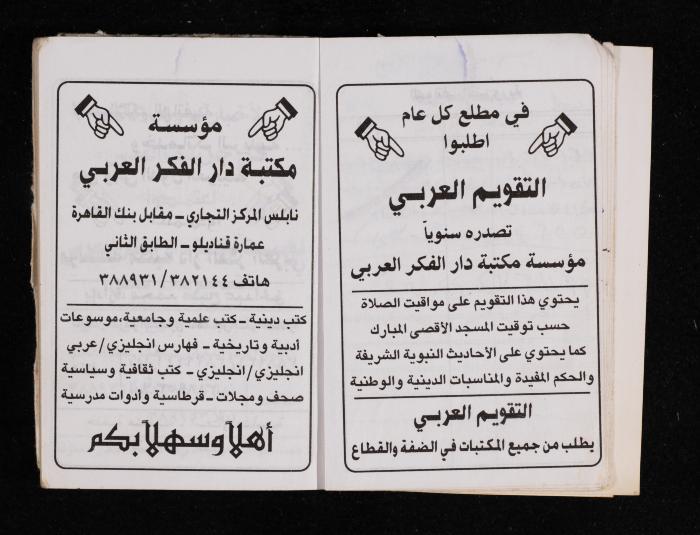 في مطلع كل عام
اطلبوا
التقويم العربي
تصدره سنوياً
مؤسسة مكتبة دار الفكر العربي
يحتوي هذا التقويم على مواقيت الصلاة
حسب توقيت المسجد الأقصى المبارك
كما يحتوي على الأحاديث النبوية الشريفة
والحكم المفيدة والمناسبات الدينية والوطنية
التقويم العربي
يطلب من جميع المكتبات في الضفة والقطاع
مؤسسة
مكتبة دار الفكر العربي
نابلس المركز التجاري - مقابل بنك القاهرة
عمارة قناديلو - الطابق الثاني
هاتف ٣٨٢١٤٤/٣٨٨٩٣١
كتب دينية - كتب علمية وجامعية، موسوعات
أدبية وتاريخية - فهارس انجليزي/عربي
انجليزي/انجليزي - كتب ثقافية وسياسية
صحف ومجلات - قرطاسية وأدوات مدرسية
أهلاً وسهلاً بكم